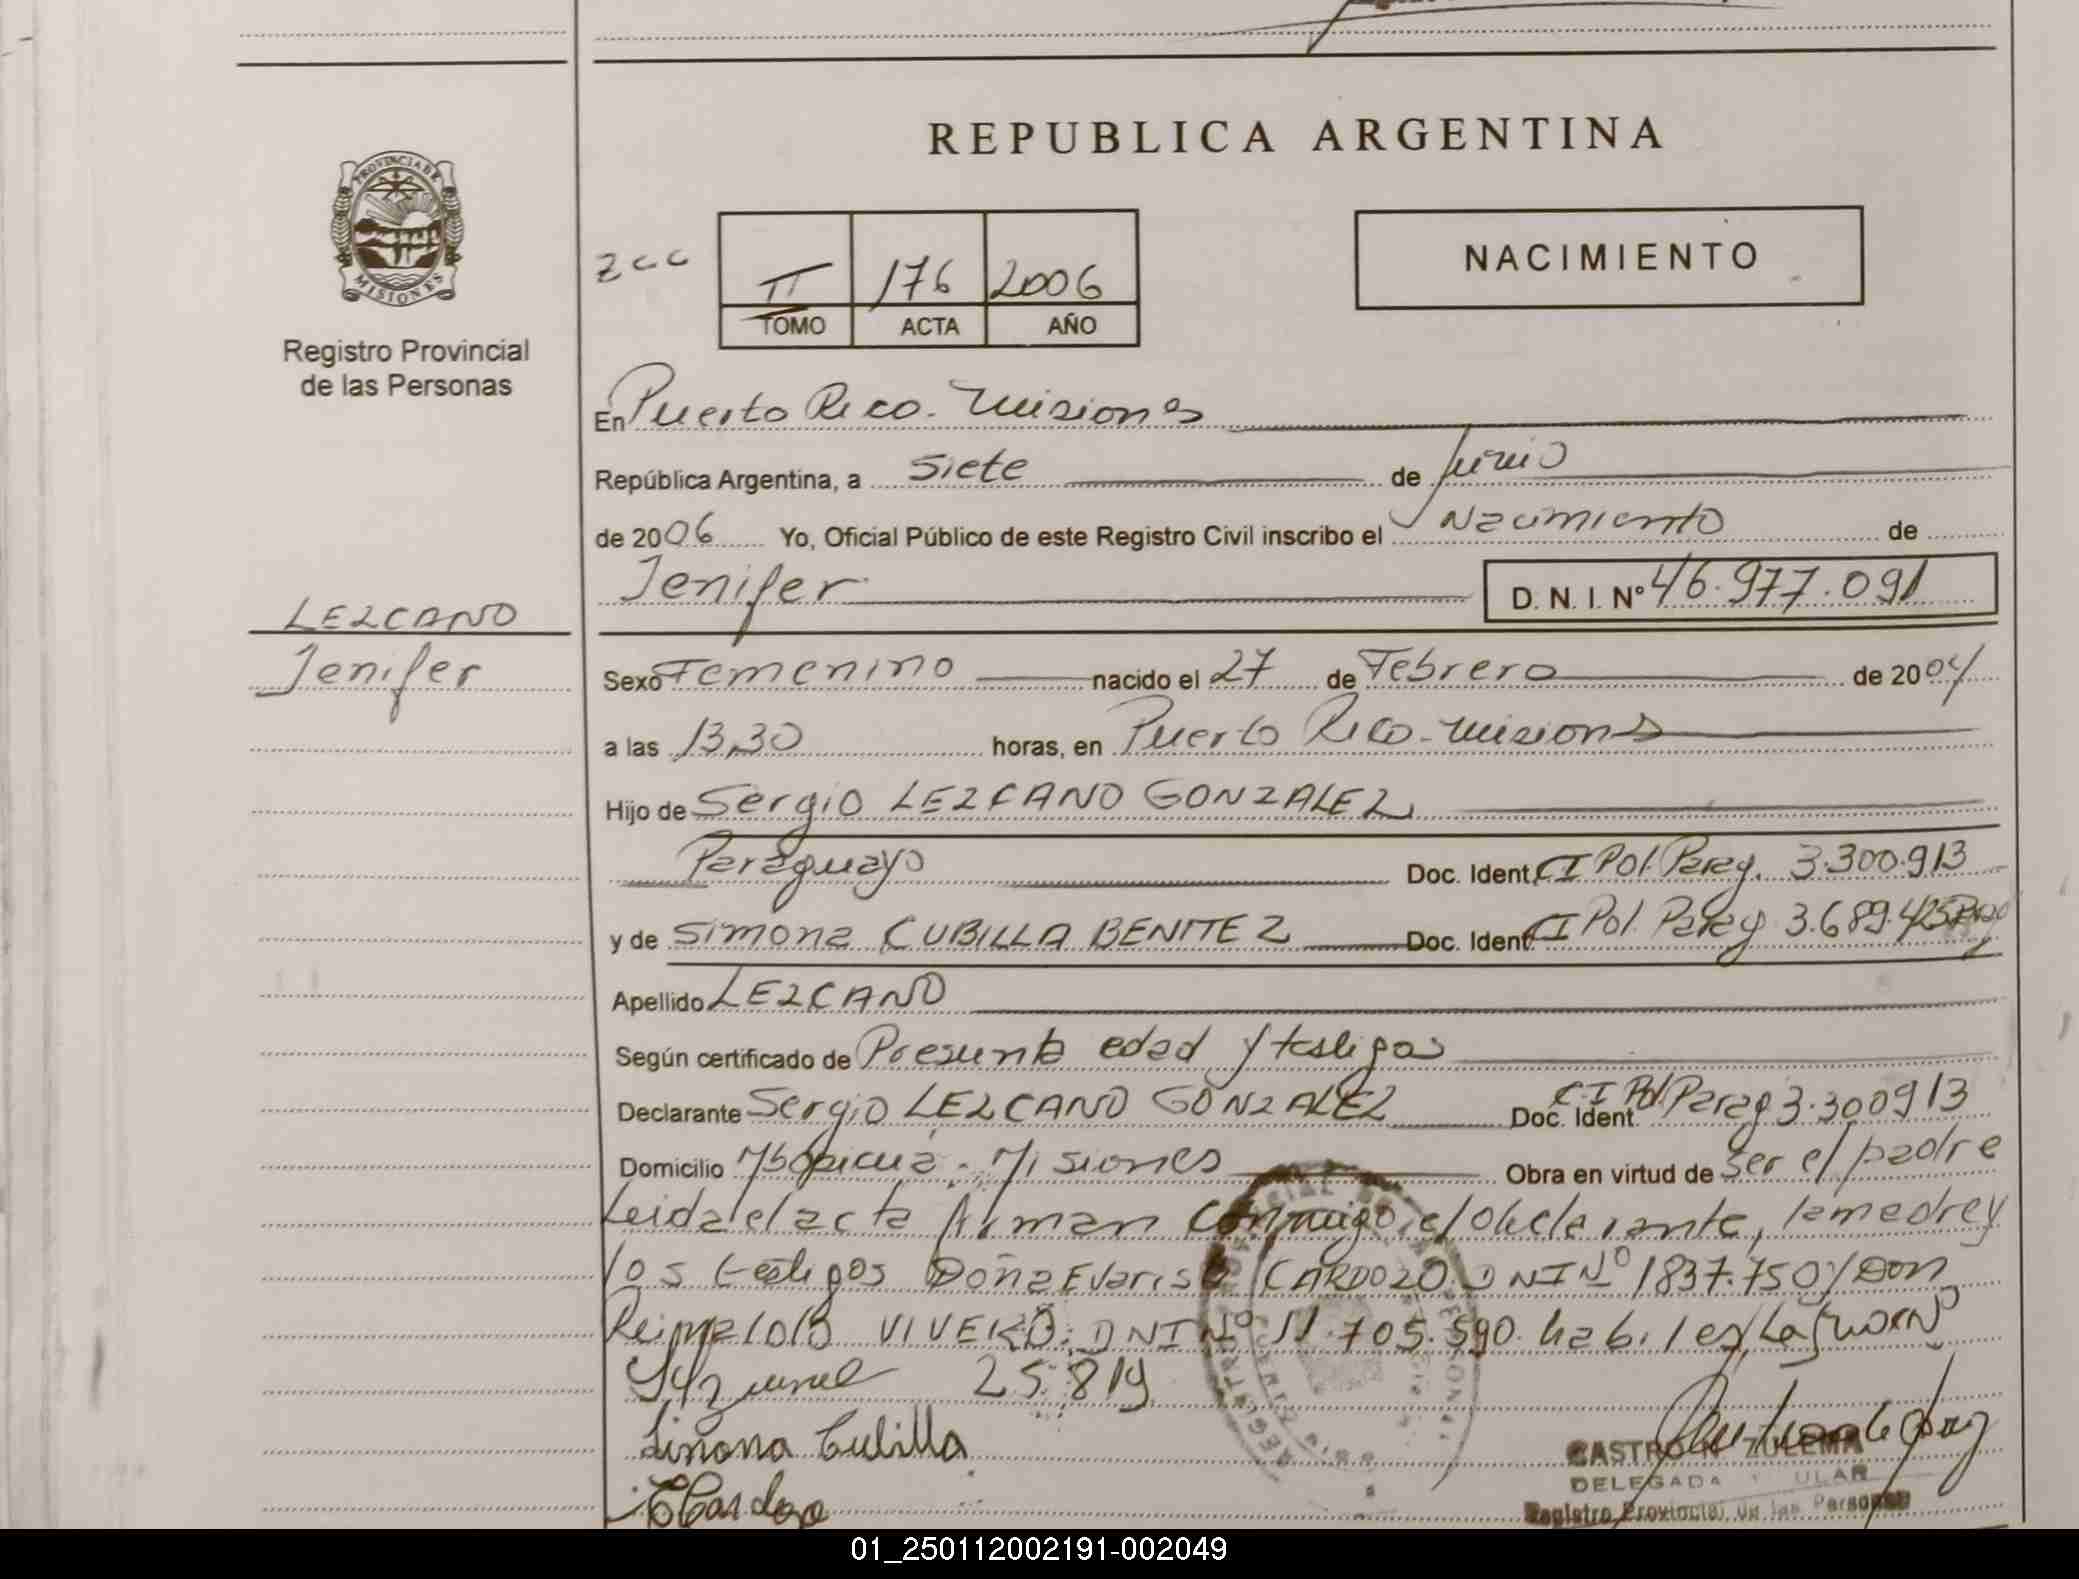 REPUBLICA ARGENTINA
PROVINCIA DE
MISIONES
Registro Provincial
de las Personas
zcc
II 176 2006
TOMO ACTA AÑO
NACIMIENTO
En Puerto Rico. Misiones
República Argentina, a siete de Junio
de 2006 Yo, Oficial Público de este Registro Civil inscribo el Nacimiento de
Jenifer D. N. I. Nº 46.977.091
LEZCANO
Jenifer
Sexo Femenino nacido el 27 de Febrero de 2004
a las 13,30 horas, en Puerto Rico-misiones
Hijo de Sergio LEZCANO GONZALEZ
Paraguayo Doc. Ident. CI Pol. Parag. 3.300.913
y de Simona CUBILLA BENITEZ Doc. Ident. CI Pol. Parag 3.689.425
Apellido LEZCANO
Según certificado de Presunta edad y testigos
Declarante Sergio LEZCANO GONZALEZ Doc. Ident. C.I Pol Parag 3.300913
Domicilio Misiones Obra en virtud de ser el padre
Leida el acta firman conmigo, el declarante, la madre y
los testigos Doña Evarista CARDOZO DNI Nº 1837.750 y Don
VIVERO. DNI Nº 11.705.590. habiles
25.819
Simona Cubilla
ECardozo
CASTRO N. ZULEMA
DELEGADA
Registro Provincial de las Personas
01_250112002191-002049